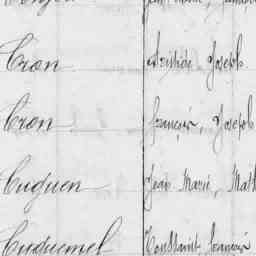 Cron Aristide Joseph
Cron François, Joseph
Cuguen Jean Marie, Math
Cuguemel Constant François